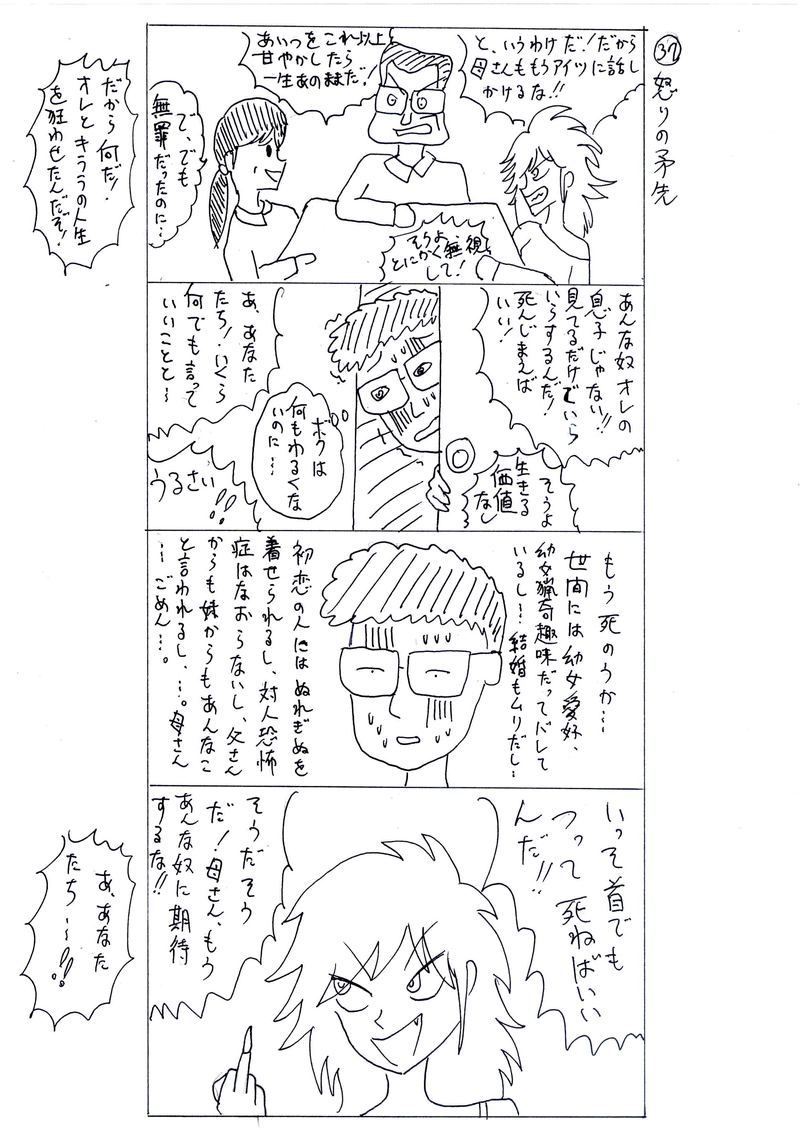 ㊲怒りの矛先
と、いうわけだ!だから
母さんももうアイツに話し
かけるな!!
あいつをこれ以上
甘やかしたら
一生あのままだ!
で、でも
無罪だったのに…
そうよ
とにかく無視
して!
だから何だ!
オレときううの人生
を狂わせたんだぞ!
あんな奴オレの
息子じゃない!!
見てるだけでいら
いらするんだ!
死んじまえば
いい!
そうよ
生きる
価値
なし
ボクは
何もわるくな
いのに…
あ、あなた
たち!いくら
何でも言って
いいことと〜
うるさい!!
もう死のうか…
世間には幼女愛好、
幼女猟奇趣味だってバレて
いるし…結婚もムリだし…
初恋の人にはぬれぎぬを
着せられるし、対人恐怖
症はなおらないし、父さん
からも妹からもあんなこ
と言われるし、…。母さん
…ごめん…。
いっそ首でも
つって死ねばいい
んだ!!
そうだそう
だ!母さん、もう
あんな奴に期待
するな!!
あ、あなた
たち〜!!